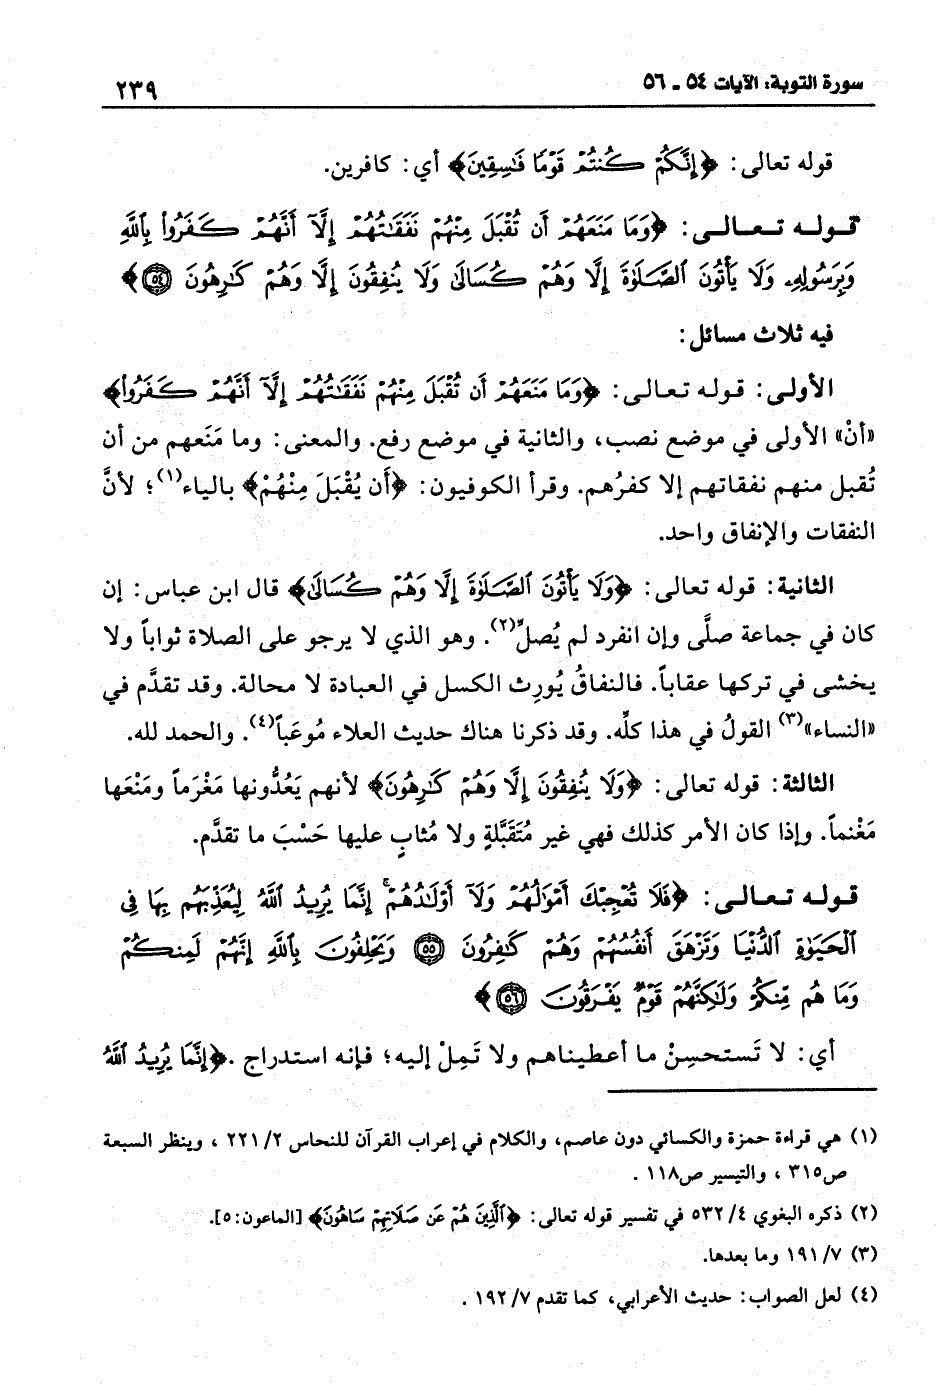 سورة التوبة: الآيات ٥٤ ـ ٥٦
٢٣٩
قوله تعالى: ﴿إِنَّكُمْ كُنتُمْ قَوْمًا فَـٰسِقِينَ﴾ أي: كافرين.
قوله تعالى: ﴿وَمَا مَنَعَهُمْ أَن تُقْبَلَ مِنْهُمْ نَفَقَـٰتُهُمْ إِلَّآ أَنَّهُمْ كَفَرُوا۟ بِٱللَّهِ
وَبِرَسُولِهِۦ وَلَا يَأْتُونَ ٱلصَّلَوٰةَ إِلَّا وَهُمْ كُسَالَىٰ وَلَا يُنفِقُونَ إِلَّا وَهُمْ كَـٰرِهُونَ ۝٥٤﴾
فيه ثلاث مسائل:
الأولى: قوله تعالى: ﴿وَمَا مَنَعَهُمْ أَن تُقْبَلَ مِنْهُمْ نَفَقَـٰتُهُمْ إِلَّآ أَنَّهُمْ كَفَرُوا۟﴾
«أنْ» الأولى في موضع نصب، والثانية في موضع رفع. والمعنى: وما مَنَعهم من أن
تُقبل منهم نفقاتهم إلا كفرُهم. وقرأ الكوفيون: ﴿أَن يُقْبَلَ مِنْهُمْ﴾ بالياء(١)؛ لأنَّ
النفقات والإنفاق واحد.
الثانية: قوله تعالى: ﴿وَلَا يَأْتُونَ ٱلصَّلَوٰةَ إِلَّا وَهُمْ كُسَالَىٰ﴾ قال ابن عباس: إن
كان في جماعة صلَّى وإن انفرد لم يُصلِّ(٢). وهو الذي لا يرجو على الصلاة ثواباً ولا
يخشى في تركها عقاباً. فالنفاقُ يُورِث الكسل في العبادة لا محالة. وقد تقدَّم في
«النساء»(٣) القولُ في هذا كلِّه. وقد ذكرنا هناك حديث العلاء مُوعَباً(٤). والحمد لله.
الثالثة: قوله تعالى: ﴿وَلَا يُنفِقُونَ إِلَّا وَهُمْ كَـٰرِهُونَ﴾ لأنهم يَعُدُّونها مَغْرَماً ومَنْعَها
مَغْنماً. وإذا كان الأمر كذلك فهي غير مُتَقَبَّلةٍ ولا مُثابٍ عليها حَسْبَ ما تقدَّم.
قوله تعالى: ﴿فَلَا تُعْجِبْكَ أَمْوَٰلُهُمْ وَلَآ أَوْلَـٰدُهُمْ ۚ إِنَّمَا يُرِيدُ ٱللَّهُ لِيُعَذِّبَهُم بِهَا فِى
ٱلْحَيَوٰةِ ٱلدُّنْيَا وَتَزْهَقَ أَنفُسُهُمْ وَهُمْ كَـٰفِرُونَ ۝٥٥ وَيَحْلِفُونَ بِٱللَّهِ إِنَّهُمْ لَمِنكُمْ
وَمَا هُم مِّنكُمْ وَلَـٰكِنَّهُمْ قَوْمٌ يَفْرَقُونَ ۝٥٦﴾
أي: لا تَستحسِنْ ما أعطيناهم ولا تَمِلْ إليه؛ فإنه استدراج. ﴿إِنَّمَا يُرِيدُ ٱللَّهُ
(١) هي قراءة حمزة والكسائي دون عاصم، والكلام في إعراب القرآن للنحاس ٢/ ٢٢١ ، وينظر السبعة
ص٣١٥ ، والتيسير ص١١٨ .
(٢) ذكره البغوي ٤/ ٥٣٢ في تفسير قوله تعالى: ﴿ٱلَّذِينَ هُمْ عَن صَلَاتِهِمْ سَاهُونَ﴾ [الماعون: ٥].
(٣) ٧/ ١٩١ وما بعدها.
(٤) لعل الصواب: حديث الأعرابي، كما تقدم ٧/ ١٩٢ .